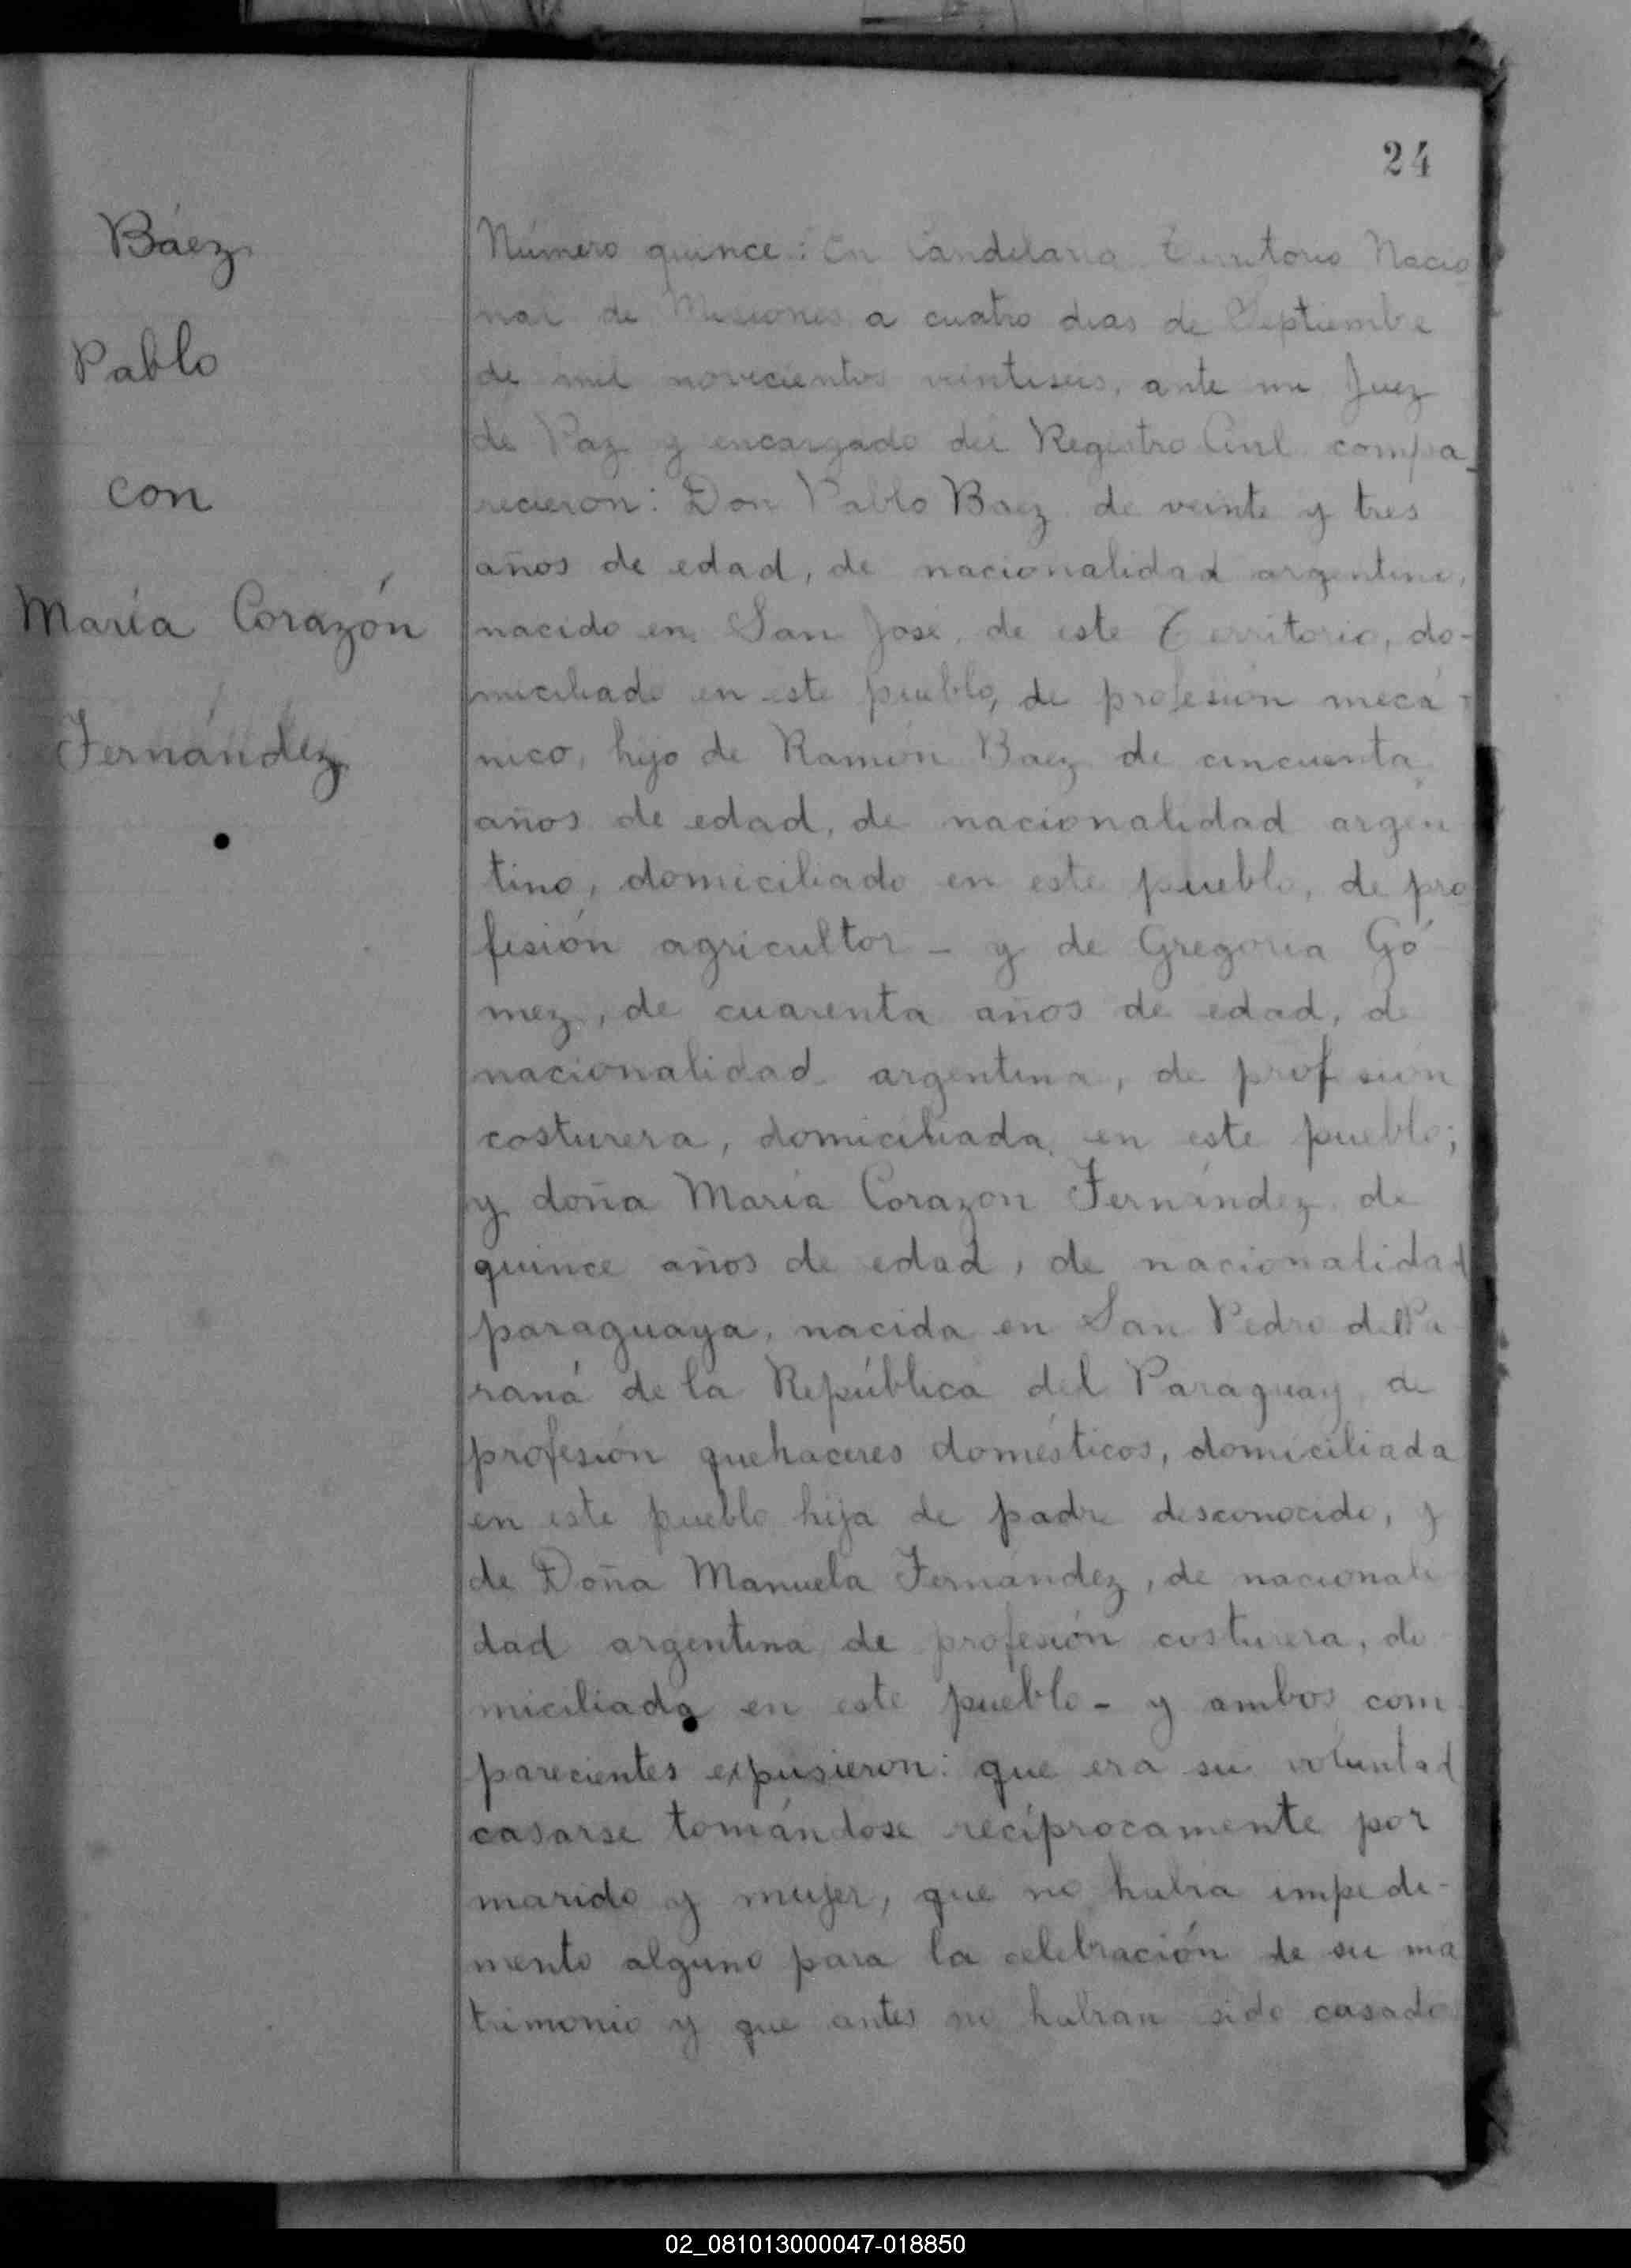 24
Báez
Pablo
con
María Corazón
Fernández
Número quince: En Candelaria Territorio Nacio
nal de Misiones a cuatro dias de Septiembre
de mil novecientos veintiseis, ante mi Juez
de Paz y encargado del Registro Civil compa_
recieron: Don Pablo Baez de veinte y tres
años de edad, de nacionalidad argentino,
nacido en San José, de este Territorio, do-
miciliado en este pueblo, de profesión mecá-
nico, hijo de Ramón Baez de cincuenta
años de edad, de nacionalidad argen
tino, domiciliado en este pueblo, de pro
fesión agricultor - y de Gregoria Gó
mez, de cuarenta años de edad, de
nacionalidad argentina, de profesión
costurera, domiciliada en este pueblo;
y doña María Corazon Fernández de
quince años de edad, de nacionalidad
paraguaya, nacida en San Pedro del Pa
raná de la República del Paraguay de
profesión quehaceres domésticos, domiciliada
en este pueblo hija de padre desconocido, y
de Doña Manuela Fernández, de nacionali
dad argentina de profesión costurera, do
miciliada en este pueblo - y ambos com
parecientes expusieron: que era su voluntad
casarse tomándose recíprocamente por
marido y mujer, que no habia impedi-
mento alguno para la celebración de su ma
trimonio y que antes no habian sido casado
02_081013000047-018850